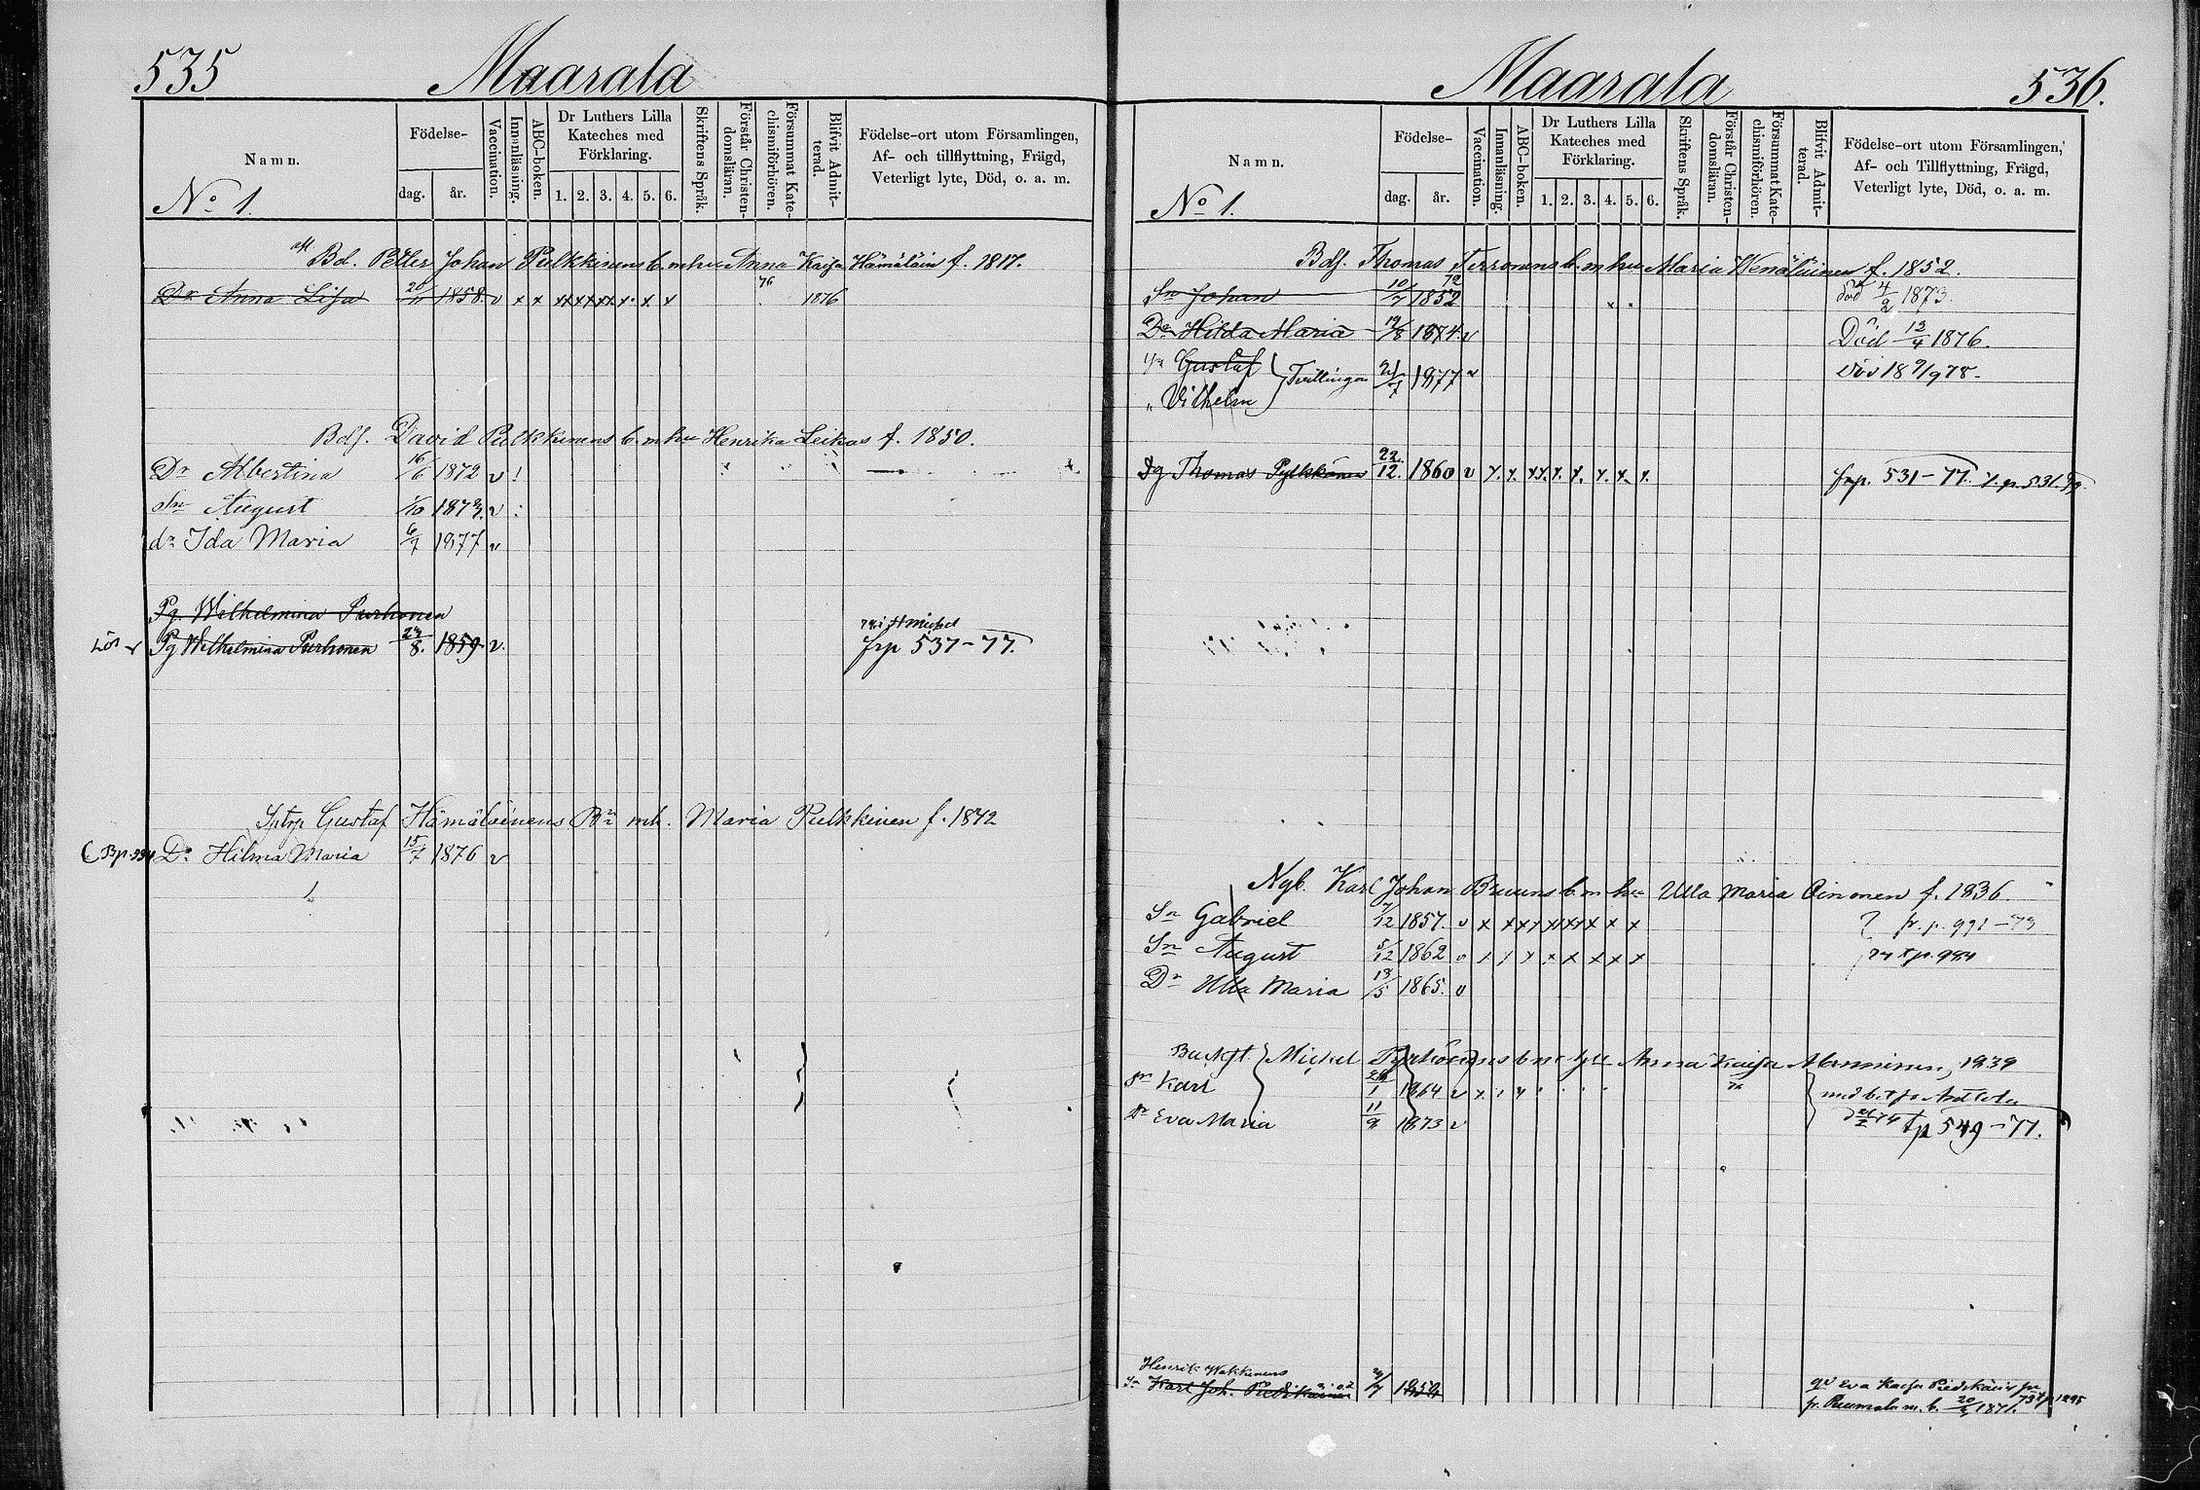 535 Maarala
Namn.
Födelse-
dag. år.
Vaccination.
Innanläsning.
ABC-boken.
Dr Luthers Lilla
Kateches med
Förklaring.
1. 2. 3. 4. 5. 6.
Skriftens Språk.
Förstår Christen-
domsläran.
Försummat Kate-
chismiförhören.
Blifvit Admit-
terad.
Födelse-ort utom Församlingen,
Af- och tillflyttning, Frägd,
Veterligt lyte, Död, o. a. m.
No 1.
Bd. Petter Johan Pulkkinens b. m hu Anna Kaisa Hämäläin f. 1817.
Dr Anna Lisa 20/11 1858. v x x x x x x x x x 76 1876
Bdf. David Pulkkinens b. m hu Henrika Leikas f. 1850.
Dr Albertina 16/6 1872 v
Sn August 1/10 1873. v
dr Ida Maria 6/7 1877 v
Pg. Wilhelmina Purhonen
Pg Wilhelmina Purhonen 24/8. 1859 v. frp 537-77.
Gustaf Hämäläinens Bn mh. Maria Pulkkinen f. 1842
Dr Hilma Maria 15/7 1876 v
Maarala 536.
Namn.
Födelse-
dag. år.
Vaccination.
Innanläsning.
ABC-boken.
Dr Luthers Lilla
Kateches med
Förklaring.
1. 2. 3. 4. 5. 6.
Skriftens Språk.
Förstår Christen-
domsläran.
Försummat Kate-
chismiförhören.
Blifvit Admit-
terad.
Födelse-ort utom Församlingen,
Af- och Tillflyttning, Frägd,
Veterligt lyte, Död, o. a. m.
No 1.
Bdf. Thomas Terronens b. m hu Maria Wenäläinen f. 1852.
Sn Johan 10/7 1852 72 död 4/2 1873.
Dr Hilda Maria 19/8 1874. v Död 13/4 1876.
Gustaf Tvillingar 21/7 1877 v
" Vilhelm
Dg Thomas Pylkkänen 22./12. 1860 v x. x. x x. x. x. x. x. x. frp. 531-77.
Ngb. Karl Johan Bruuns b. m hu Ulla Maria Oinonen f. 1836.
Sn Gabriel 7/12 1857. v x x x x x x x x x fr. p. 991-73
Sn August 5/12 1862 v x x x x x x x x
Dr Ulla Maria 13/5 1865. v
Mickel b m hu Anna Kaisa Manninen, 1839
Sn Karl 1864 v
Dr Eva Maria 11/9 1873 v tp 549-77.
Henrik Wakkinens
Sn Karl Joh.
Eva Kaisa
m. b. 1871.